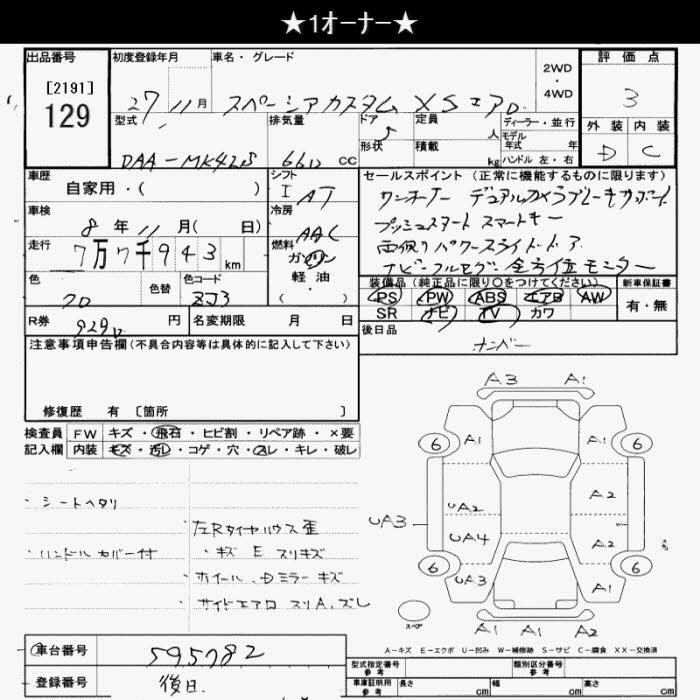 ★1オーナー★
出品番号
[2191]
129
初度登録年月
27 11 月
車名・グレード
スペーシアカスタム XS エアロ
2WD
・
4WD
評価点
3
外装 内装
D C
型式
DAA-MK42S
排気量
660 cc
ドア 5
形状
定員 人
積載 kg
ディーラー・並行
モデル
年式 年
ハンドル 左・右
車歴
自家用・( )
シフト
I AT
車検
8 年 11 月( 日)
冷房
AAC
走行
7万7千943 km
燃料
ガソリン
軽・油
( )
色
色替
色コード
ZJ3
R券
929 円
名変期限 月 日
セールスポイント (正常に機能するものに限ります)
ワンオーナー デュアルカメラブレーキサポート
プッシュスタート スマートキー
両側パワースライドドア
ナビ フルセグ 全方位モニター
装備品 (純正品に限り○をつけてください)
PS PW ABS エアB AW
SR ナビ TV カワ
新車保証書
有・無
後日品
ナンバー
注意事項申告欄(不具合内容等は具体的に記入して下さい)
修復歴 有 〔箇所 〕
検査員 FW キズ・飛石・ヒビ割・リペア跡・×要
記入欄 内装 キズ・汚レ・コゲ・穴・スレ・キレ・破レ
・シートヘタリ
・ハンドルカバー付
・左Rタイヤハウス歪
・キズ E スリキズ
・ホイール、Dミラーキズ
・サイドエアロ スリA、ズレ
A3 A1
6 A1 A1 6
UA2 A2
UA3
UA4 A2
6 UA3 A1 6
スペア
A1 A1 A2
A-キズ E-エクボ U-凹み W-補修跡 S-サビ C-腐食 XX-交換済
車台番号
595782
登録番号
後日
型式指定番号
参考
類別区分番号
参考
車庫証明用
参考
長さ cm 幅 cm 高さ cm